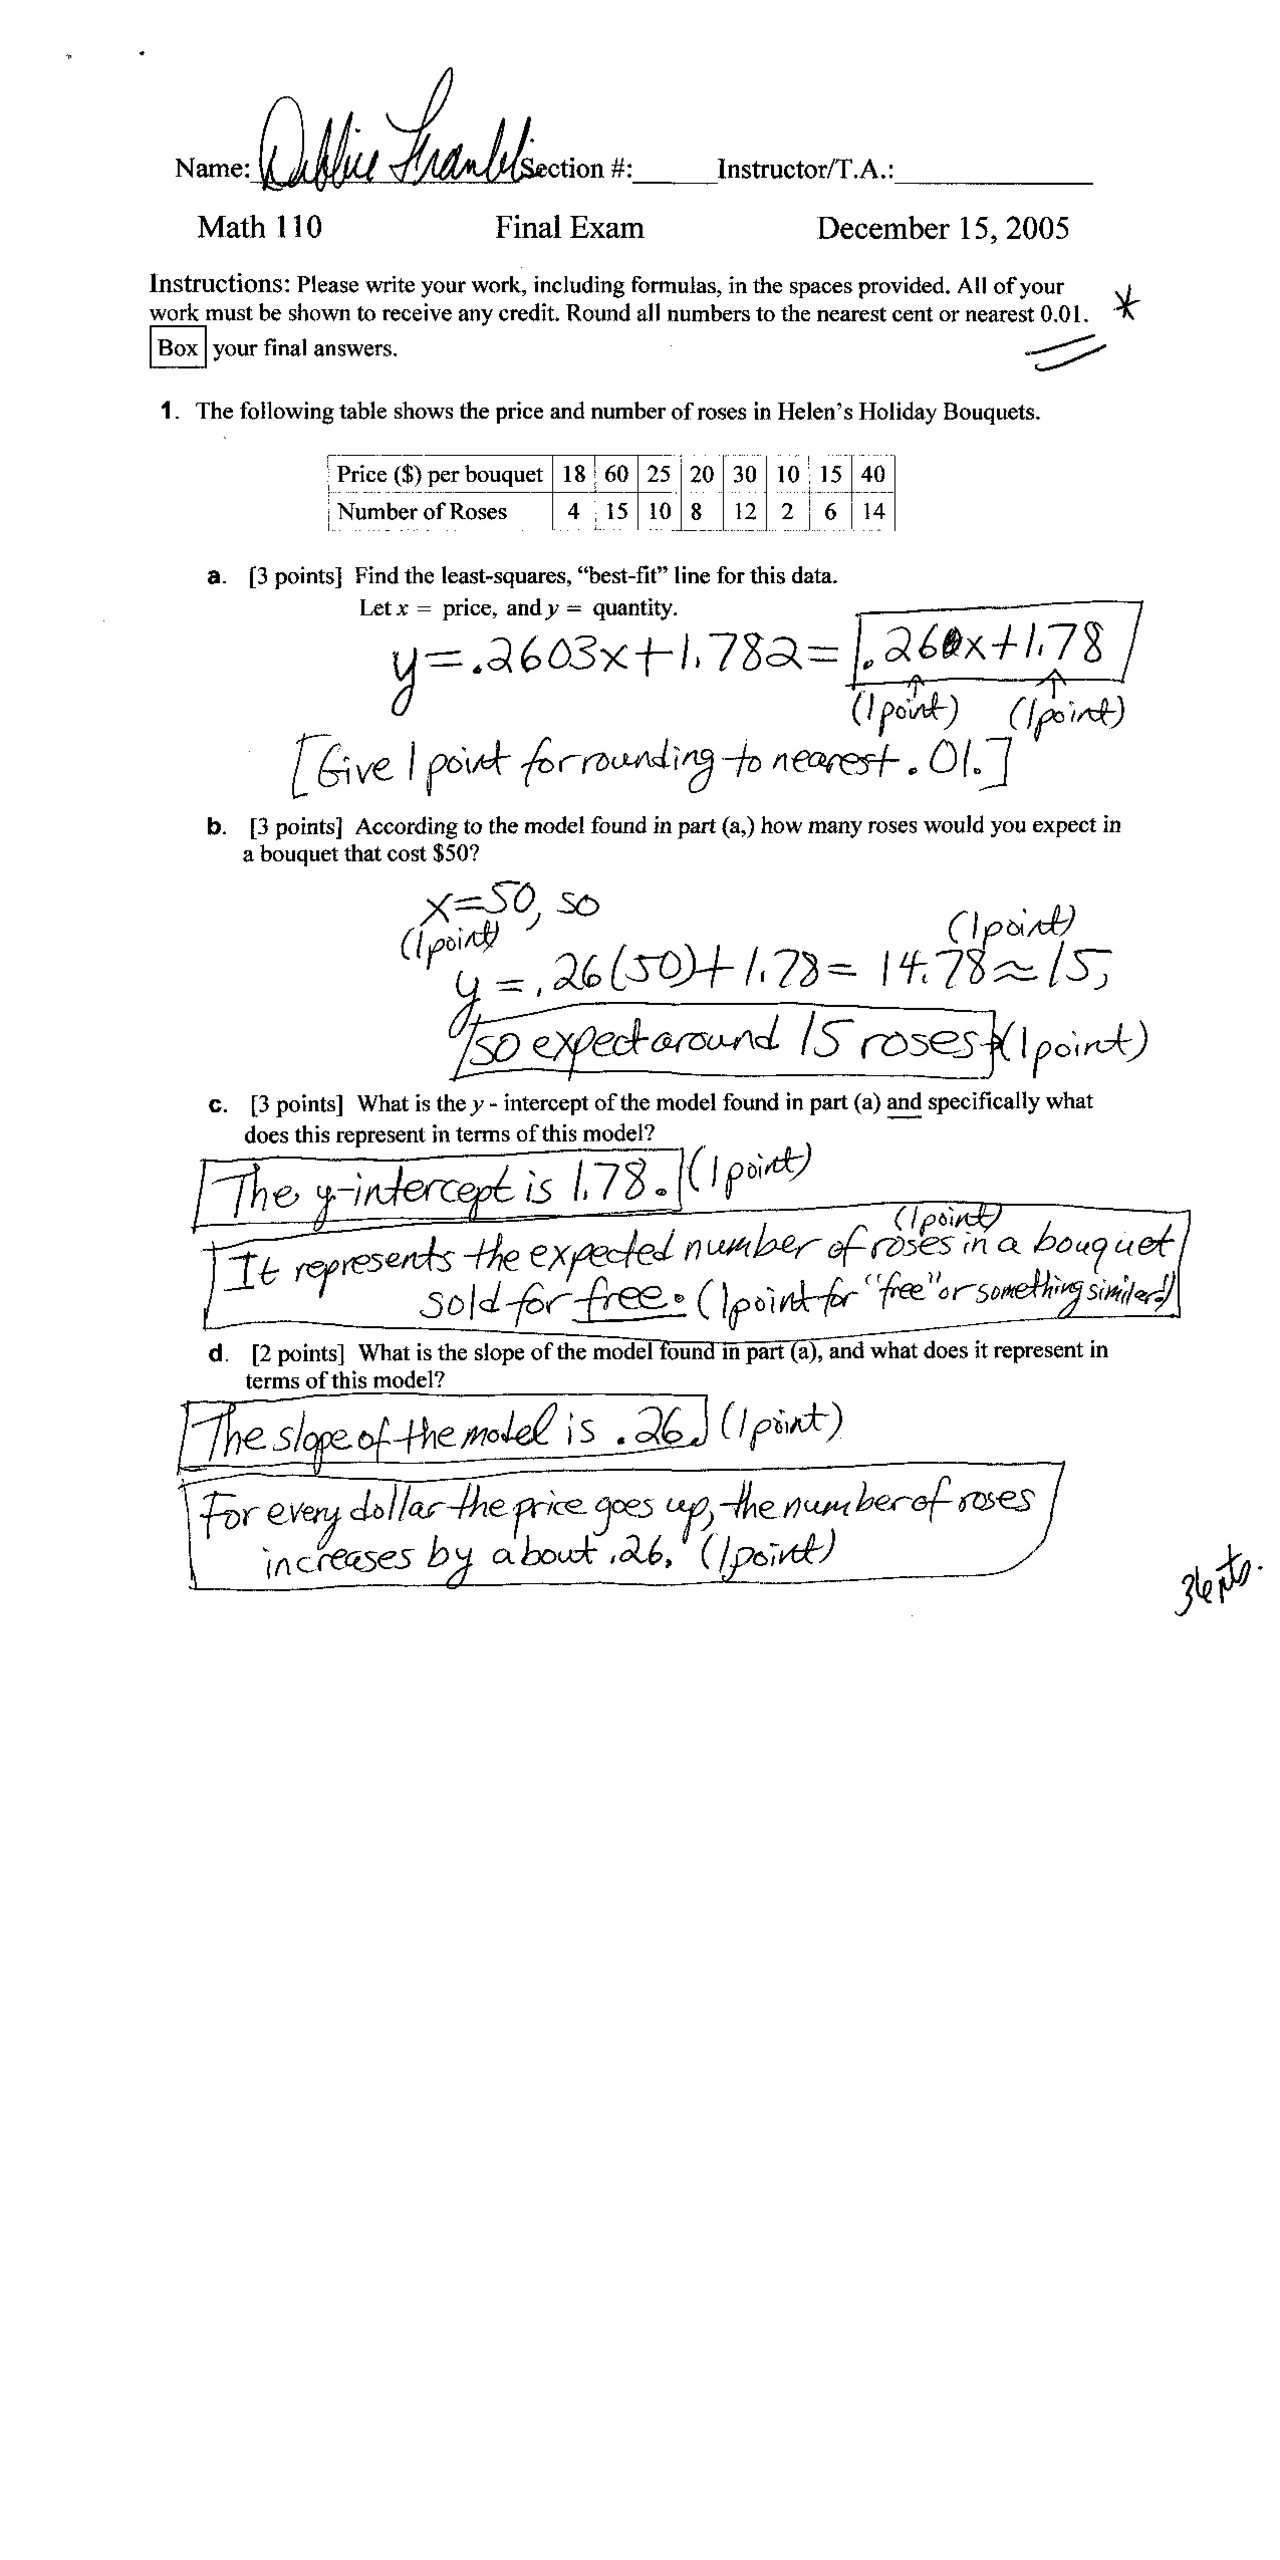 Name: Debbie Franklin Section #:______ Instructor/T.A.:______________
Math 110 Final Exam December 15, 2005
Instructions: Please write your work, including formulas, in the spaces provided. All of your
work must be shown to receive any credit. Round all numbers to the nearest cent or nearest 0.01. *
Box your final answers.
1. The following table shows the price and number of roses in Helen's Holiday Bouquets.
Price ($) per bouquet 18 60 25 20 30 10 15 40
Number of Roses 4 15 10 8 12 2 6 14
a. [3 points] Find the least-squares, "best-fit" line for this data.
Let x = price, and y = quantity.
y=.2603x+1.782= .26x+1.78
(1 point) (1 point)
[Give 1 point for rounding to nearest .01.]
b. [3 points] According to the model found in part (a,) how many roses would you expect in
a bouquet that cost $50?
x=50, so
(1 point) (1 point)
y=.26(50)+1.78= 14.78≈15,
so expect around 15 roses. (1 point)
c. [3 points] What is the y - intercept of the model found in part (a) and specifically what
does this represent in terms of this model?
The y-intercept is 1.78. (1 point)
(1 point)
It represents the expected number of roses in a bouquet
sold for free. (1 point for "free" or something similar.)
d. [2 points] What is the slope of the model found in part (a), and what does it represent in
terms of this model?
The slope of the model is .26. (1 point)
For every dollar the price goes up, the number of roses
increases by about .26. (1 point)
36 pts.